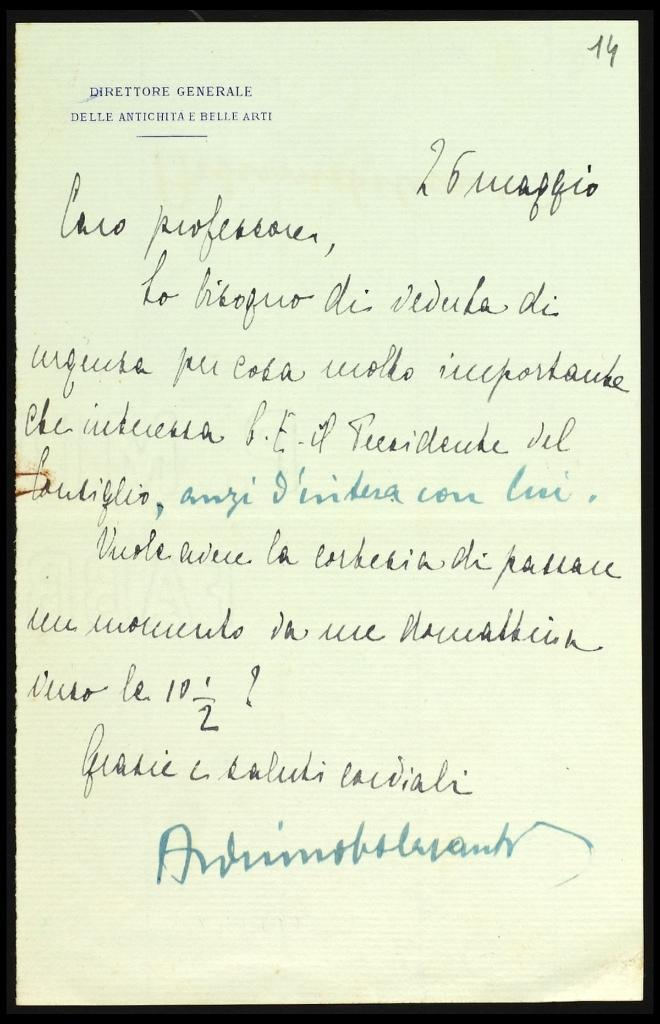 14
DIRETTORE GENERALE
DELLE ANTICHITÀ E BELLE ARTI
26 maggio
Caro professore,
ho bisogno di vederla di
urgenza per cosa molto importante
che interessa S. E. il Presidente del
Consiglio, anzi d'intesa con lui.
Vuole avere la cortesia di passare
un momento da me domattina
verso le 10 1/2 ?
Grazie e saluti cordiali